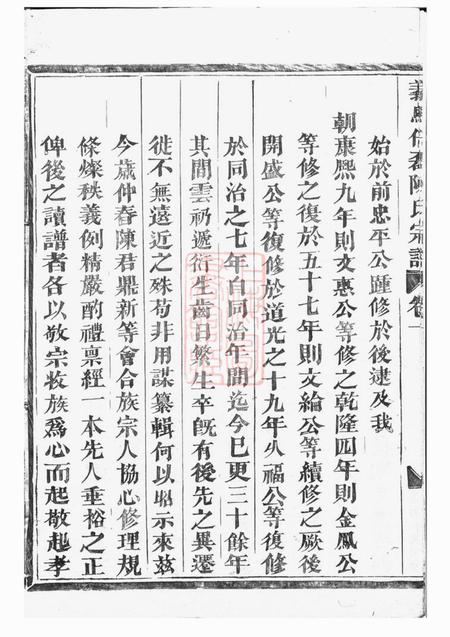 始於前忠平公踵修於後逮及我
朝康熙九年則文惠公等修之乾隆四年則金鳳公
等修之復於五十七年則文綸公等續修之厥後
開盛公等復修於道光之十九年火福公等復修
於同治之七年自同治年間迄今已更三十餘年
其間雲礽遞衍生齒日繁生卒旣有後先之異遷
徙不無遠近之殊苟非用謀纂輯何以昭示來茲
今歲仲春陳君鼎新等會合族宗人協心修理規
條燦秩義例精嚴酌禮稟經一本先人垂裕之正
俾後之讀譜者各以敬宗收族爲心而起敬起孝
陳氏宗譜